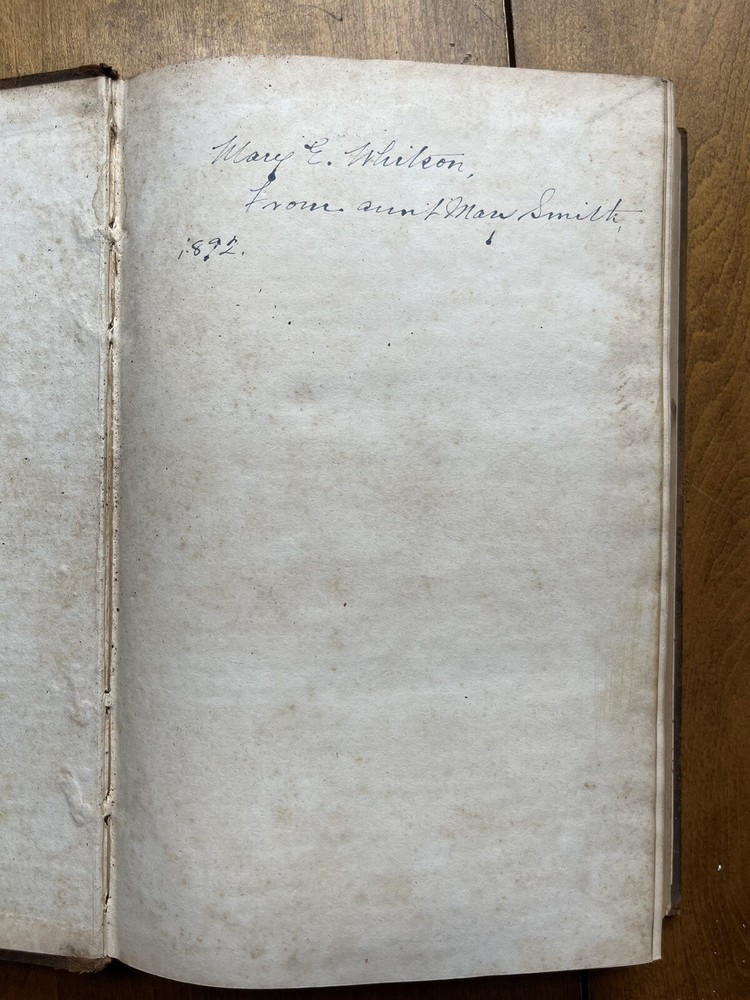 Mary E. Whitson,
From aunt Mary Smith,
1892.